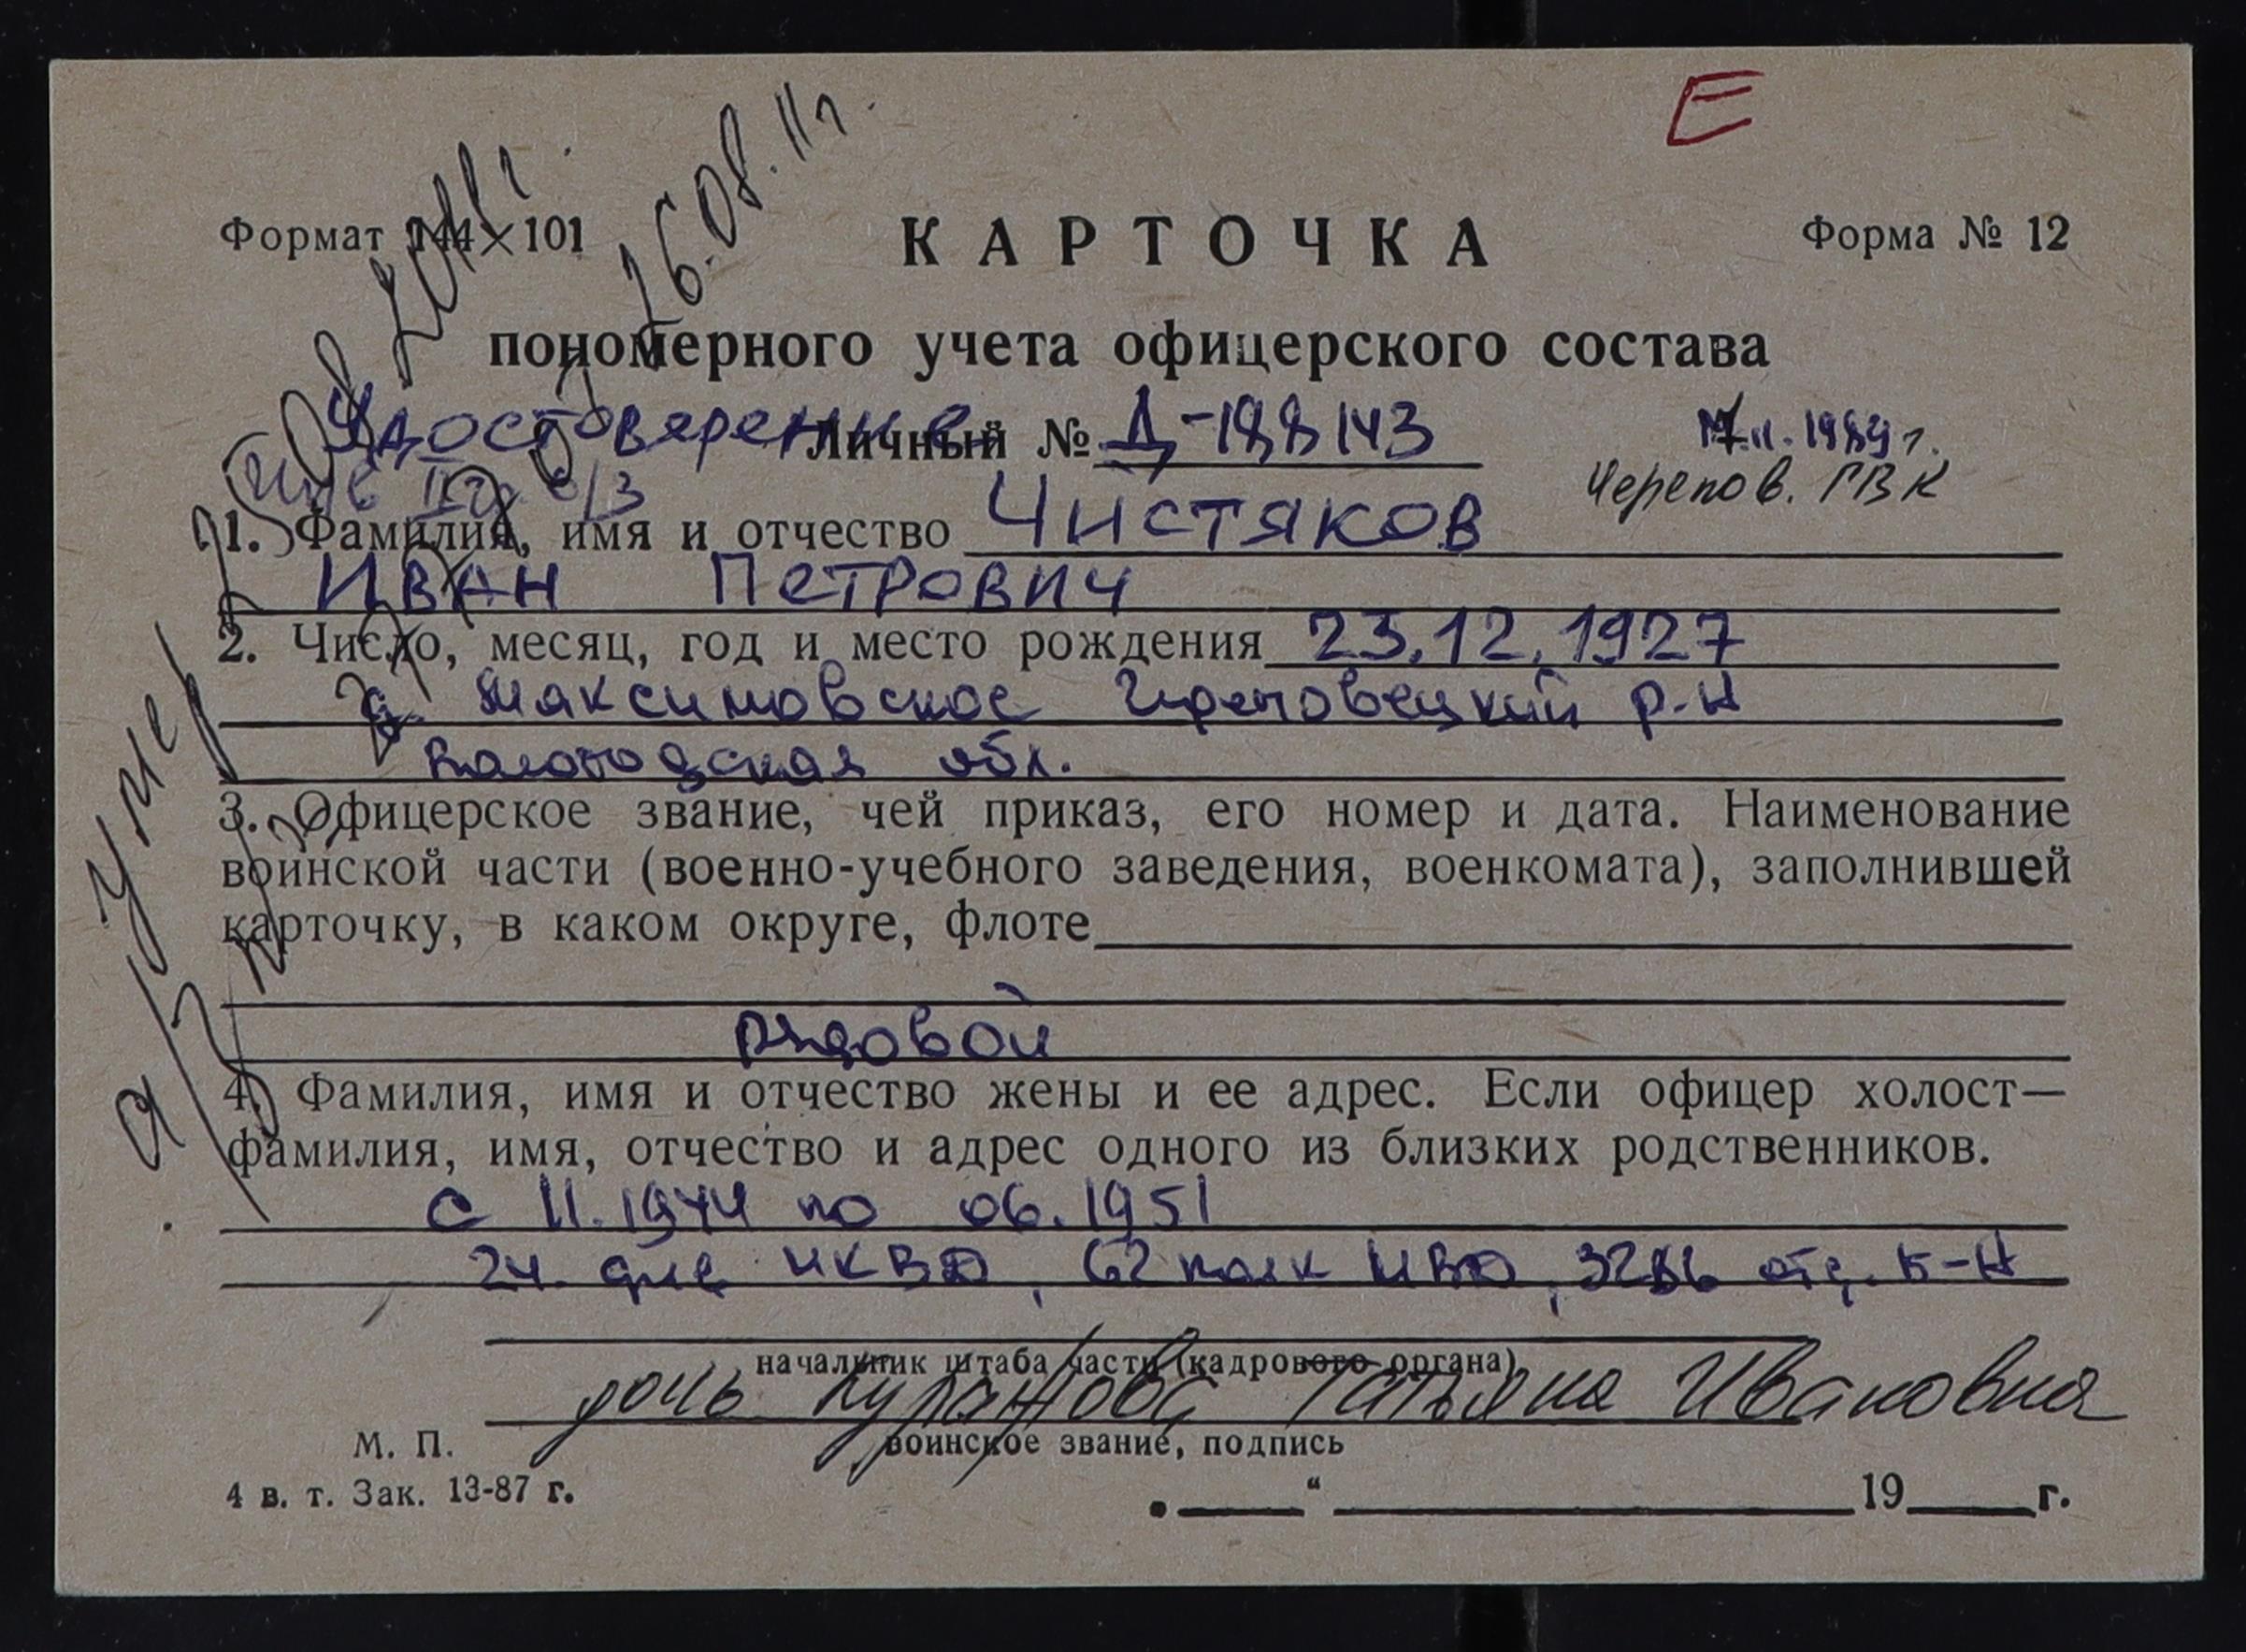 Е
Формат 144×101 КАРТОЧКА Форма № 12
16.08.11г.
пономерного учета офицерского состава
Удостоверение Личный № Д-188143 17.11.1989 г.
Черепов. ГВК
1. Фамилия, имя и отчество Чистяков
Иван Петрович
2. Число, месяц, год и место рождения 23.12.1927
д. Максимовское Череповецкий р-н
Вологодская обл.
умер
3. Офицерское звание, чей приказ, его номер и дата. Наименование
воинской части (военно-учебного заведения, военкомата), заполнившей
карточку, в каком округе, флоте
рядовой
4. Фамилия, имя и отчество жены и ее адрес. Если офицер холост—
фамилия, имя, отчество и адрес одного из близких родственников.
с 11.1944 по 06.1951
24. див НКВД, 62 полк МВД, отд. к-н
начальник штаба части (кадрового органа)
дочь Татьяна Ивановна
воинское звание, подпись
М. П.
4 в. т. Зак. 13-87 г.
„ “ 19 г.